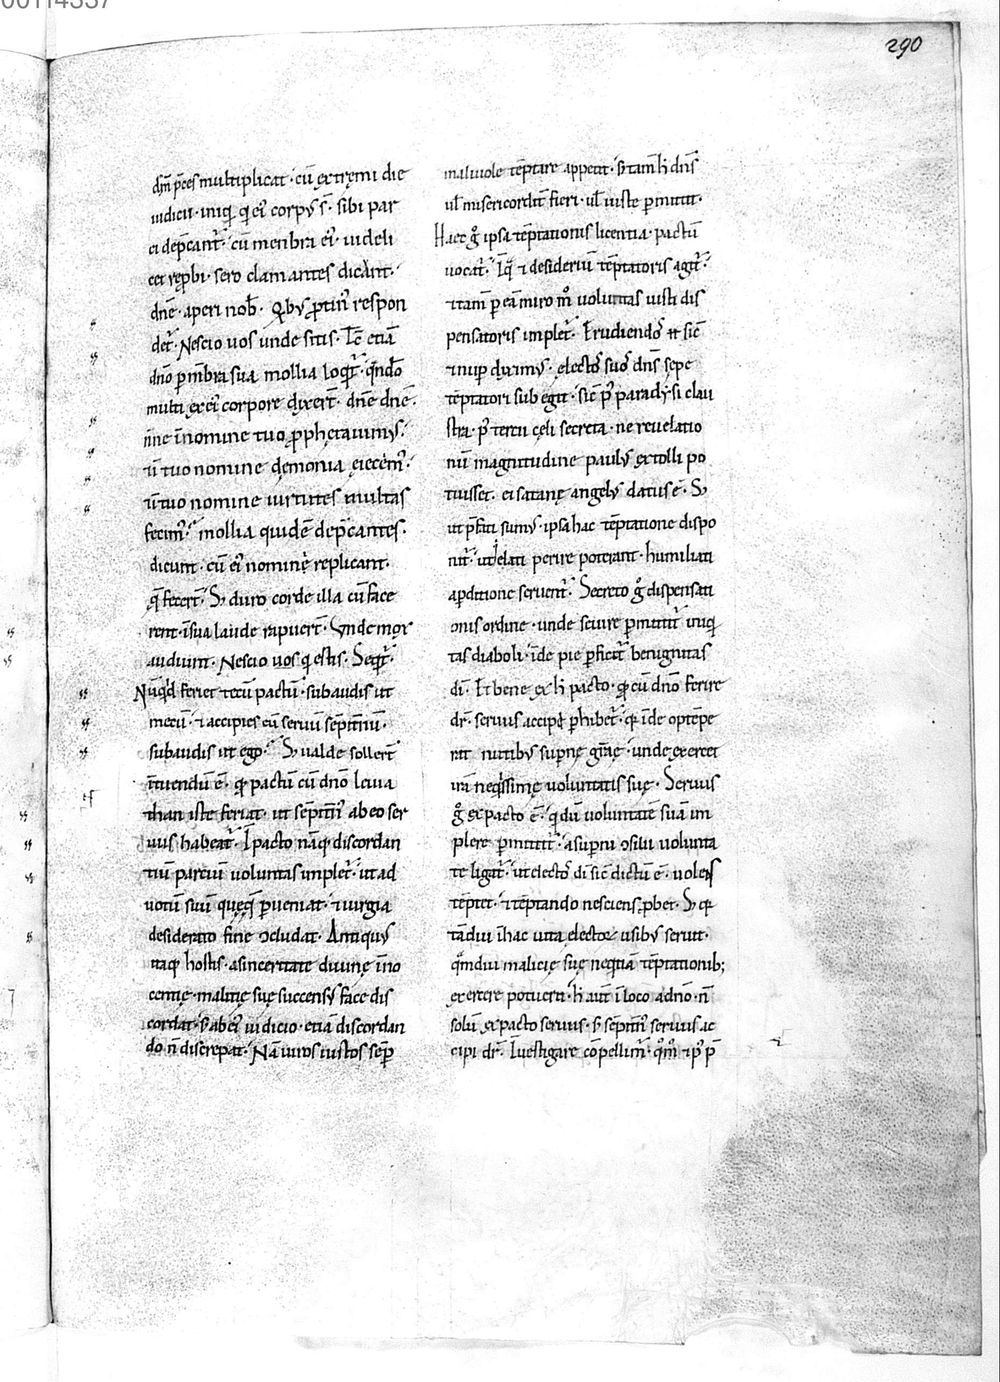 00114337
290
dm̄ p̄ces multiplicat· cū extremi die
iudicii· iniqui qui ei᷒ corpus s̄t· sibi par
ci dep̄cant᷑· cū menbra ei᷒· uideli
cet rep̱bi· sero clamantes dicant·
dn̄e· aperi nob̄· Qb᷒ p̱tin᷒ respon
det᷑· Nescio uos unde sitis· Ic̄ etiā
dn̄o ꝑ mb̄ra sua mollia loqt᷑· qn̄do
multi ex ei᷒ corpore dixer̄t· dn̄e dn̄e·
nn̄e ī nomine tuo ꝓphetauim᷒·
⁊ ī tuo nomine demonia eiecim᷒·
⁊ ī tuo nomine uirtutes multas
fecim᷒· mollia quidē dep̄cantes·
dicunt· cū ei᷒ nomine replicant·
q̄ fecer̄t· S; duro corde illa cū face
rent· ī sua laude rapuer̄t· Vnde mox
audiunt· Nescio uos qi estis· Seqt᷑·
Nūqd feriet tecū pactū· subaudis ut
mecū· ⁊ accipies eū seruū sēpit̄nū·
subaudis ut ego· S; ualde sollert᷑
ītuendū ē· qꝫ pactū cū dn̄o leuia
than iste feriat· ut sēpit̄n᷒ ab eo ser
uus habeat᷑· I pacto nāqꝫ discordan
tiū parciū uoluntas implet᷑· ut ad
uotū suū queqꝫ ꝑueniat· ⁊ iurgia
desiderato fine ↄcludat· Antiquus
itaqꝫ hostis· a sinceritate diuine ino
centię· malitię suę succensus face dis
cordat· s; ab ei᷒ iudicio· etiā discordan
do n̄ discrepat· Nā uiros iustos sēꝑ
maliuole tēptare appetit· s; tam̄ h̄ dn̄s
ul̄ misericordit᷑ fieri· ul̄ iuste ꝑmittit·
Haec g̊ ipsa tēptationis licentia· pactū
uocat᷑· Iq̄ ⁊ desideriū tēptatoris agit᷑·
⁊ tam̄ ꝑ eā miro m̊ uoluntas iusti dis
pensatoris implet᷑· Erudiendos eī sic̄
⁊ nup̱ diximus· electos suos dn̄s sepe
tēptatori subegit· sic̄ p᷒ paradysi clau
stra· p᷒ tercii cęli secreta· ne reuelatio
nū magnitudine paulus extolli po
tuisset· ei satanę angelus datus ē· S;
ut p̄fati sumus· ipsa hac tēptatione dispo
nit᷑· ut q elati perire poterant· humiliati
a ꝑditione seruent᷑· Secreto g̊ dispensati
onis ordine· unde seuire ꝑmittit᷑ iniqui
tas diaboli· īde pie ꝑficit᷑ benignitas
dī· Et bene ex h̄ pacto· qꝫ cū dn̄o ferire
dr̄· seruus accipi ꝑhibet᷑· qꝫ īde optēpe
rat nutibus supnę gr̄ę· unde exercet
irā neqissimę uoluntatis suę· Seruus
g̊ ex pacto ē· q dū uoluntatē suā im
plere ꝑmittit᷑· a supni ↄsilii volunta
te ligat᷑· ut electos dī sic̄ dictū ē· uolens
tēptet· ⁊ tēptando nesciens ꝓbet· S; qꝫ
tādiu ī hac uita electoꝝ usibus seruit·
qm̄diu malicię suę neqtiā tēptationib;
exercere potuerit· h̄ aut̄ ī loco a dn̄o· n̄
solū ex pacto seruus· s; sēpit̄n᷒ seruus ac
cipi dr̄· Iuestigare cōpellim᷑· qm̊ ⁊ ip᷒ p᷒